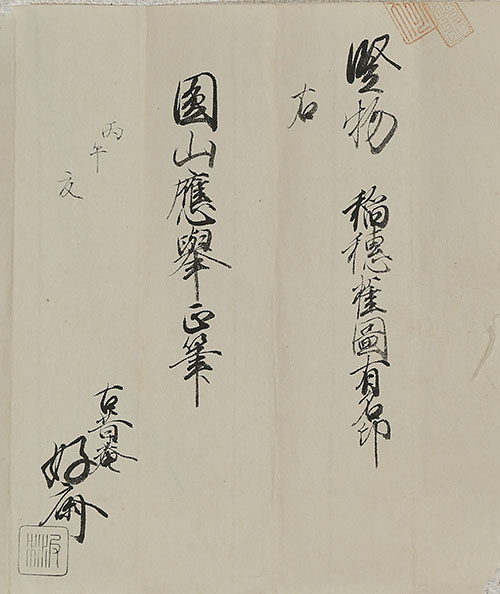 竪物 稲穂雀圖有名印
右
圓山應擧正筆
丙午
夏
古昔菴
好斎